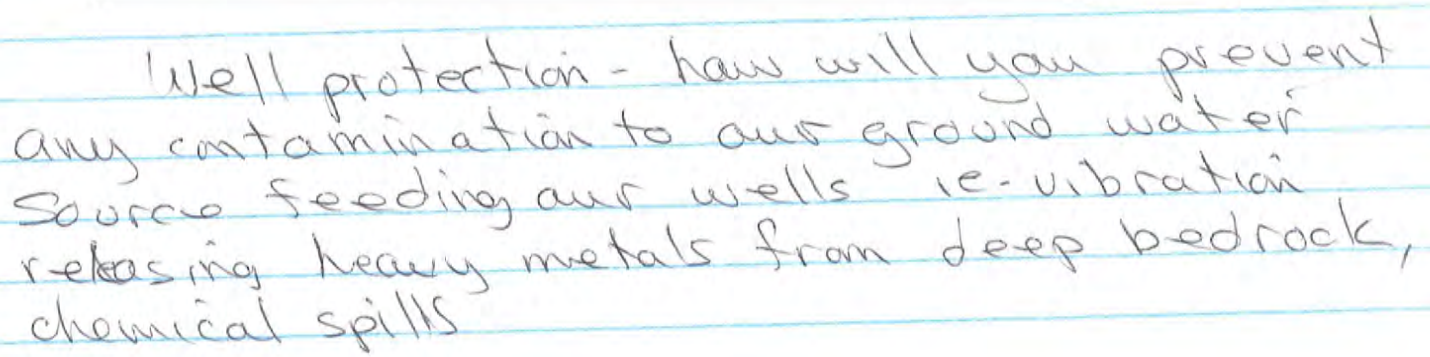 Well protection - how will you prevent
any contamination to our ground water
source feeding our wells ie-vibration
releasing heavy metals from deep bedrock,
chemical spills